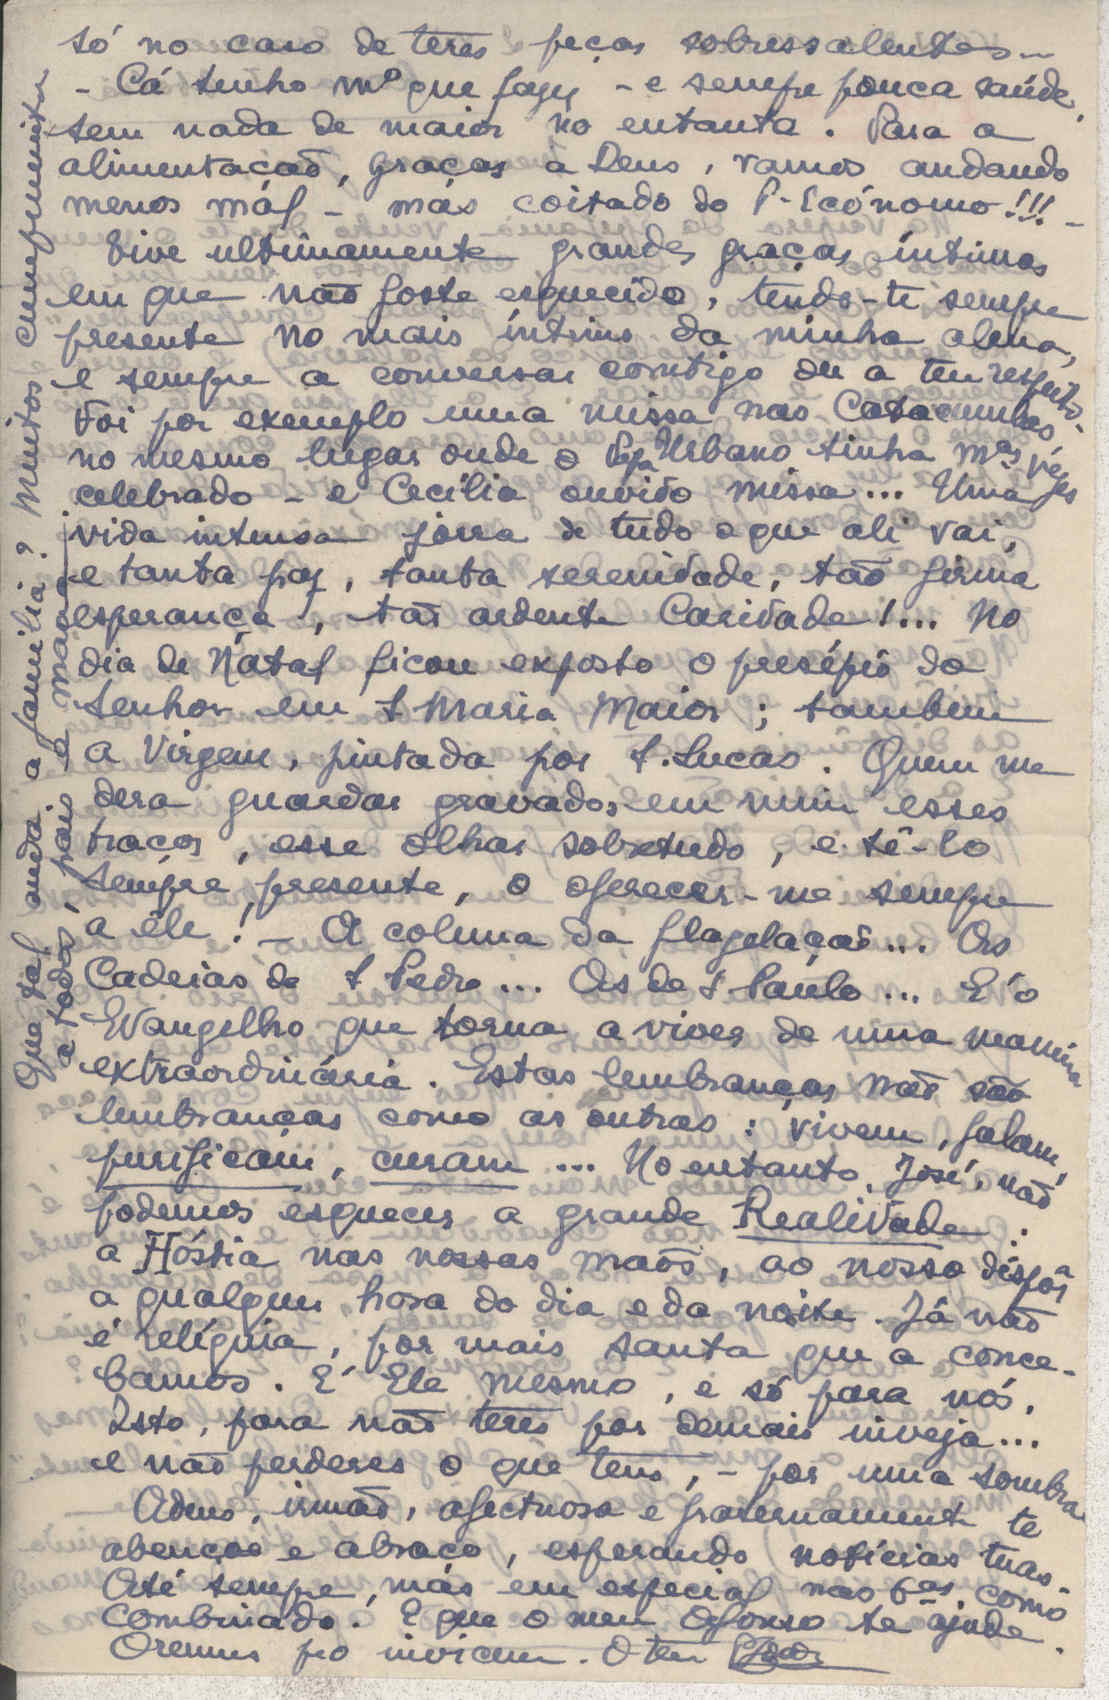 só no caso de teres peças sobressalentes -
- Cá tenho mº que fazer - e sempre pouca saúde,
sem nada de maior no entanto. Para a
alimentação, graças a Deus, vamos andando
menos mál - mas coitado do P. Ecónomo!!! -
Tive ultimamente grandes graças íntimas
em que não foste esquecido, tendo-te sempre
presente no mais íntimo da minha alma,
e sempre a conversar comtigo ou a teu respeito.
Foi por exemplo uma missa nas Catacumbas,
no mesmo lugar onde o Papa Urbano tinha mªs vezes
celebrado - e Cecília ouvido missa... Uma
vida intensa jorra de tudo o que ali vai,
e tanta paz, tanta serenidade, tão firme
esperança, tão ardente Caridade!... No
dia de Natal ficou exposto o presépio do
Senhor em S Maria Maior; tambem
a Virgem, pintada por S. Lucas. Quem me
dera guardar gravados em mim esses
traços, esse olhar sobretudo, e tê-lo
sempre presente, e oferecer-me sempre
a êle! - A coluna da flagelação... As
Cadeias de S Pedro... As de S Paulo... É o
Evangelho que torna a viver de uma maneira
extraordinária. Estas lembranças não são
lembranças como as outras: vivem, falam,
purificam, curam... No entanto, José, não
podemos esquecer a grande Realidade:
a Hóstia nas nossas mãos, ao nosso dispôr
a qualquer hora do dia e da noite. Já não
é relíquia, por mais santa que a conce-
bamos. É Ele mesmo, e só para nós.
Isto, para não teres por demais inveja...
e não perderes o que tens, - por uma sombra.
Adeus, irmão, afectuosa e fraternamente te
abenço e abraço, esperando notícias tuas.
Até sempre, mas em especial nas 6ªs, como
combinado. E que o meu Afonso te ajude.
Oremus pro invicem. O teu
Que tal anda a família? Muitos cumprimentos
a todos, pais e manos.